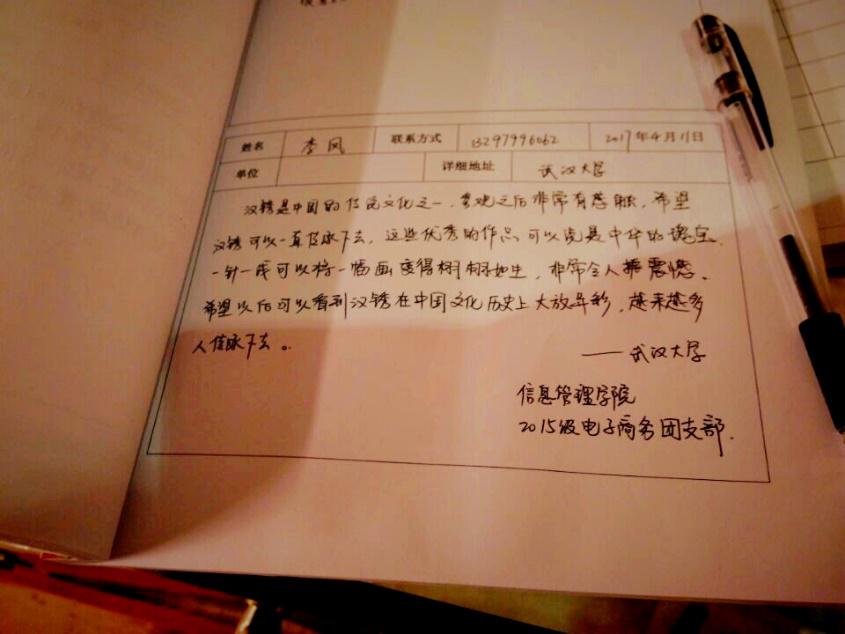 姓名 李风 联系方式 13297996062 2017年4月11日
单位 详细地址 武汉大学
汉锈是中国的传统文化之一，参观之后非常有感触，希望
汉锈可以一直传承下去，这些优秀的作品可以说是中华的瑰宝，
一针一线可以将一幅画变得栩栩如生，非常令人震憾。
希望以后可以看到汉锈在中国文化历史上大放异彩，越来越多
人传承下去。
——武汉大学
信息管理学院
2015级电子商务团支部.